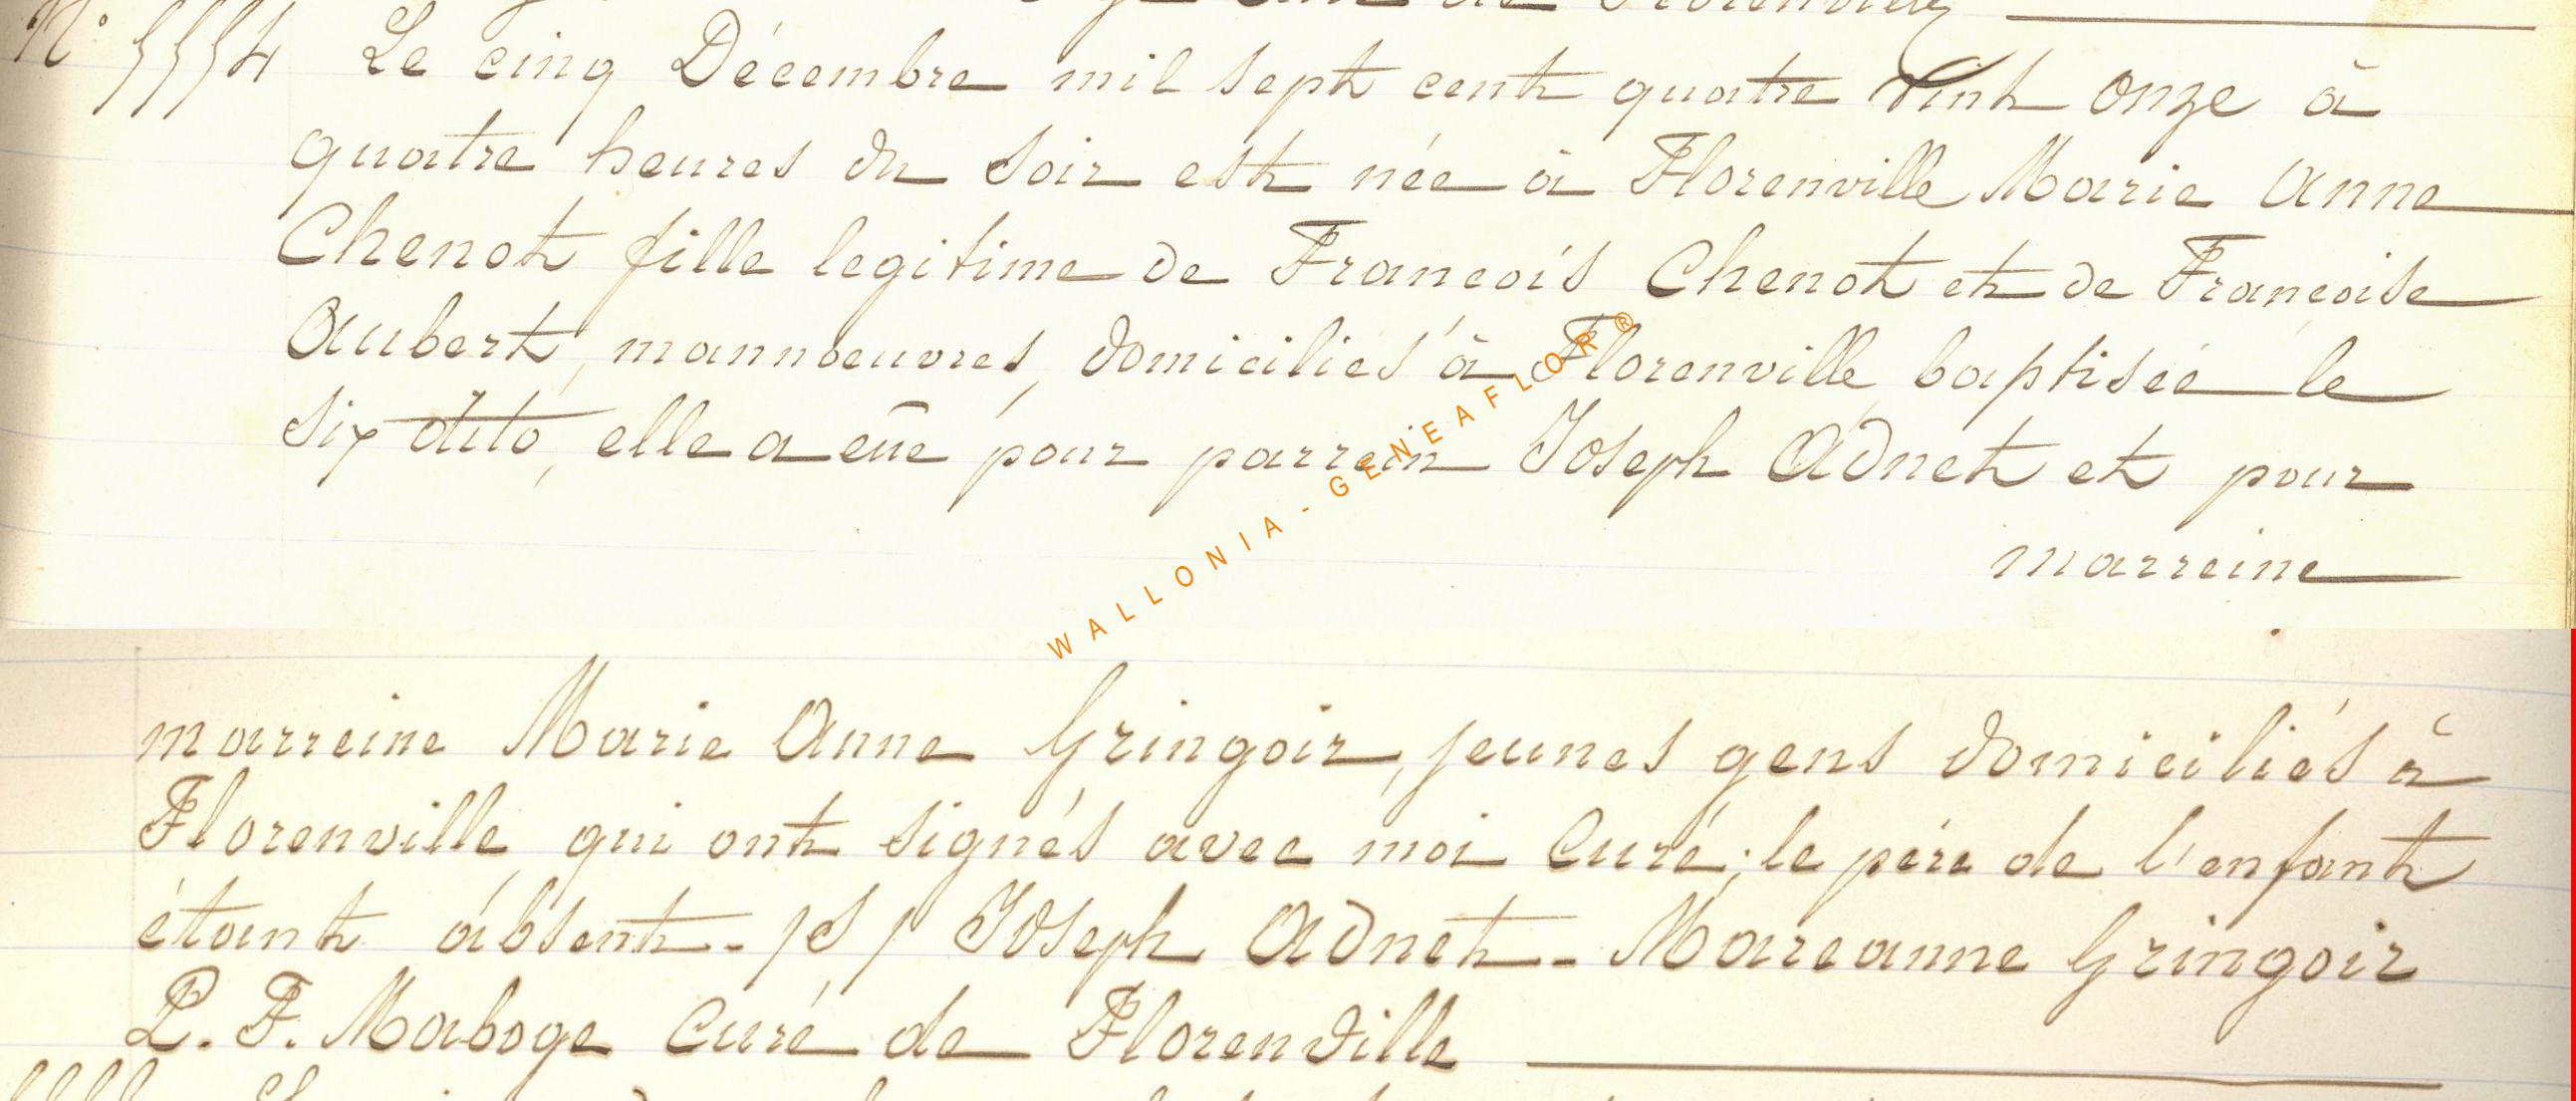 de Florenville
N° 5554 Le cinq Décembre mil sept cent quatre vint onze à
quatre heures du soir est née à Florenville Marie Anne
Chenot fille legitime de Francois Chenot et de Francoise
Aubert, mannoeuvres, domiciliés à Florenville baptisée le
six dito, elle a eüe pour parrein Joseph Adnet et pour
marreine
marreine Marie Anne Gringoir, jeunes gens domiciliés à
Florenville qui ont signés avec moi Curé; le pére de l'enfant
étant absent. /S/ Joseph Adnet. Mareanne Gringoir
P. F. Maboge Curé de Florenville
WALLONIA - GENEAFLOR ®